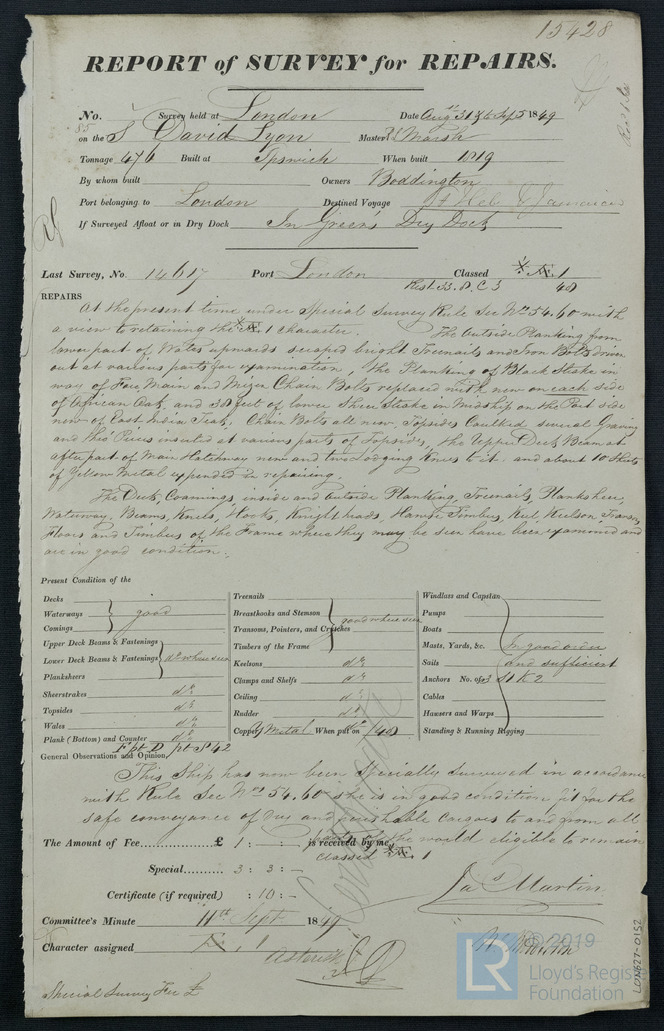 15428
REPORT of SURVEY for REPAIRS.
No. Survey held at London Date Augt 31 & 6 Sept 1849
on the S David Lyon Master Marsh
Tonnage 476 Built at Ipswich When built 1819
By whom built Owners Boddington
Port belonging to London Destined Voyage St Hel & Jamaica
If Surveyed Afloat or in Dry Dock In Green's Dry Dock
Last Survey, No. 14617 Port London Classed Æ.1
48
REPAIRS
At the present time under Special Survey Rule Sec Nos 54.60 with
a view to retaining the Æ.1 Character. The Outside Planking from
lower part of Wales upwards scraped bright Treenails and Iron Bolts driven
out at various parts for examination, The Planking of Black Strake in
way of Fore Main and Mizen Chain Bolts replaced with new on each side
of African Oak, and 38 feet of lower Sheer Strake in Midship on the Port side
new of East India Teak. Chain Bolts all new, Topsides Caulked several Graving
and Tho' Pieces inserted at various parts of Topsides, the Upper Deck Beam at
after part of Main Hatchway new and two Lodging Knees to it. and about 10 Sheets
of Yellow Metal expended in repairing.
The Deck, Coamings inside and outside Planking, Treenails, Planksheer,
Waterway, Beams, Knees, Hooks, Knightheads, Hawse Timbers, Keel Keelson, Transoms,
Floors and Timbers of the Frame where they may be seen have been examined and
are in good condition.
Present Condition of the
Decks
Waterways good
Comings
Upper Deck Beams & Fastenings
Lower Deck Beams & Fastenings do where seen
Planksheers
Sheerstrakes do
Topsides do
Wales do
Plank (Bottom) and Counter do
Treenails
Breasthooks and Stemson good where seen
Transoms, Pointers, and Crutches
Timbers of the Frame
Keelsons do
Clamps and Shelfs do
Ceiling do
Rudder do
Copper Y Metal When put on 48
Windlass and Capstan
Pumps
Boats
Masts, Yards, &c. In good order
Sails and sufficient
Anchors No. of 3 St K2
Cables
Hausers and Warps
Standing & Running Rigging
F pt D pt S 42
General Observations and Opinion,
This Ship has now been Specially Surveyed in accordance
with Rule Sec Nos 54.60 she is in good condition fit for the
safe conveyance of Dry and perishable Cargoes to and from all
parts of the world eligible to remain
The Amount of Fee £ 1 : - : - is received by me,
classed Æ.1
Special 3 : 3 : -
Certificate (if required) : 10 : -
Jas Martin
Committee's Minute 11th Sept 1849
Character assigned Æ.1
Asterisk
Special Survey Fee £
LON627-0152
LR
© 2019
Lloyd's Register
Foundation